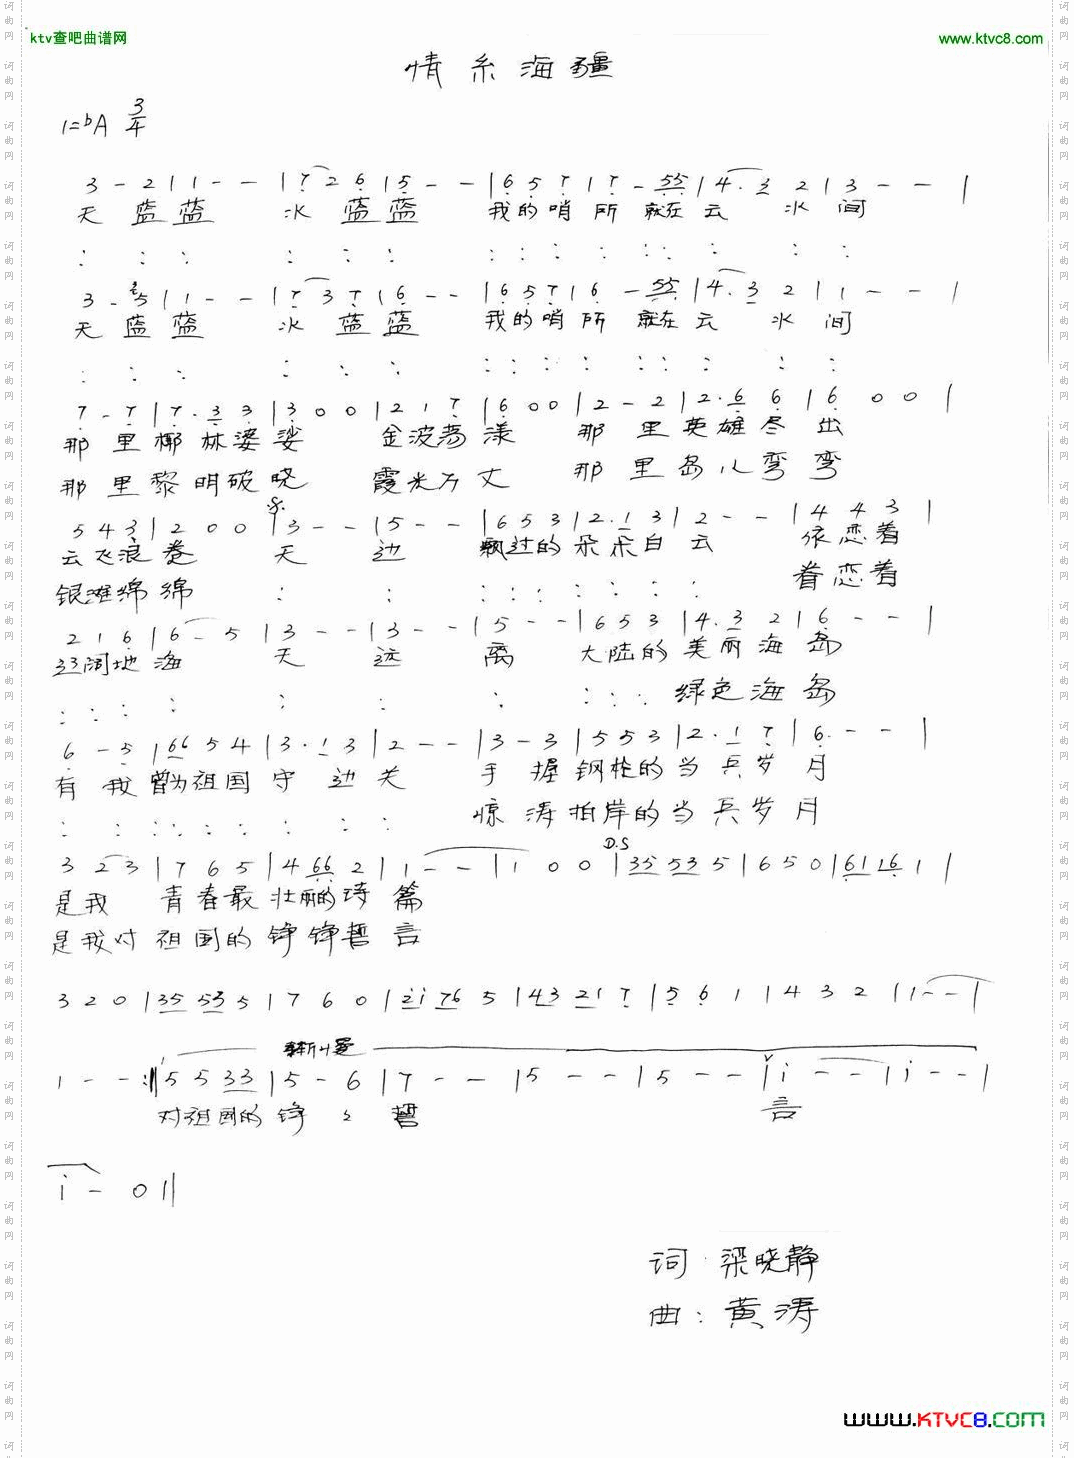 ktv查吧曲谱网 www.ktvc8.com
情系海疆
1=bA 3/4
3 - 2 | 1 - - | 7 2 6 | 5 - - | 6 5 7 | 7 - 55 | 4. 3 2 | 3 - - |
天 蓝蓝 水 蓝蓝 我的哨所 就在云 水间
: : : : : : : : : : : : : : :
3 - 5 | 1 - - | 7 3 7 | 6 - - | 6 5 7 | 6 - 55 | 4. 3 2 | 1 - - |
天 蓝蓝 水 蓝蓝 我的哨所 就在云 水间
: : : : : : : : : : : : : : :
7 - 7 | 7. 3 3 | 3 0 0 | 2 1 7 | 6 0 0 | 2 - 2 | 2. 6 6 | 6 0 0 |
那里椰林婆娑 金波荡漾 那里英雄尽出
那里黎明破晓 霞光万丈 那里岛儿弯弯
5 4 3 | 2 0 0 | 3 - - | 5 - - | 6 5 3 | 2. 1 3 | 2 - - | 4 4 3 |
云飞浪卷 天 边 飘过的朵朵白云 依恋着
银滩绵绵 : : : : : : : : : 眷恋着
2 1 6 | 6 - 5 | 3 - - | 3 - - | 5 - - | 6 5 3 | 4. 3 2 | 6 - - |
辽阔地海 天 远 离 大陆的美丽海岛
: : : : : : : : : : 绿色海岛
6 - 5 | 66 5 4 | 3. 1 3 | 2 - - | 3 - 3 | 5 5 3 | 2. 1 7 | 6. - - |
有我曾为祖国守边关 手握钢枪的当兵岁月
: : : : : : : : : 惊涛拍岸的当兵岁月
D.S
3 2 3 | 7 6 5 | 4 66 2 | 1 - - | 1 0 0 | 35 53 5 | 6 5 0 | 61 16 1 |
是我 青春最壮丽的诗篇
是我对祖国的铮铮誓言
3 2 0 | 35 53 5 | 7 6 0 | 2i 76 5 | 43 21 7 | 5 6 1 | 4 3 2 | 1 - - |
渐慢
1 - - :‖ 5 5 33 | 5 - 6 | 7 - - | 5 - - | 5 - - | i - - | i - - |
对祖国的铮々誓 言
i - 0 ‖
词：梁晓静
曲：黄涛
www.KTVC8.com